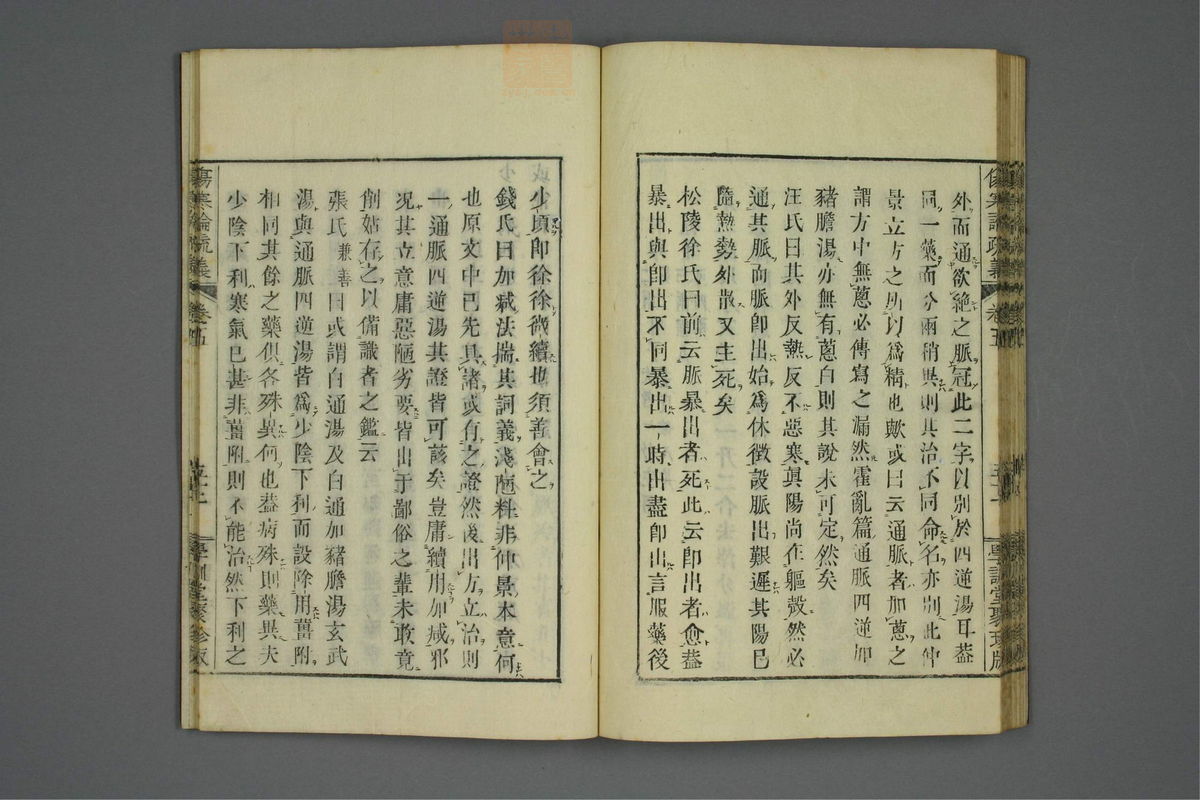 外而通欲絶之脈冠此二字以別於四逆湯耳葢
同一藥而分兩稍異則其治不同命名亦別此仲
景立方之所以爲精也歟或曰云通脈者加蔥之
謂方中無蔥必傳寫之漏然霍亂篇通脈四逆加
豬膽湯亦無有蔥白則其說未可定然矣
汪氏曰其外反熱反不惡寒眞陽尚在軀殼然必
通其脈而脈卽出始爲休徵設脈出艱遲其陽已
隨熱勢外散又主死矣
松陵徐氏曰前云脈暴出者死此云卽出者愈葢
暴出與卽出不同暴出一時出盡卽出言服藥後
少頃卽徐徐微續也須善會之
錢氏曰加減法揣其詞義淺陋料非仲景本意何
也原文中已先具諸或有之證然後出方立治則
一通脈四逆湯其證皆可該矣豈庸續用加減邪
況其立意庸惡陋劣要皆出于鄙俗之輩未敢竟
削姑存之以備識者之鑑云
張氏兼善曰或謂白通湯及白通加豬膽湯玄武
湯與通脈四逆湯皆爲少陰下利而設除用薑附
相同其餘之藥俱各殊異何也葢病殊則藥異夫
少陰下利寒氣已甚非薑附則不能治然下利之
傷寒論疏義
卷五